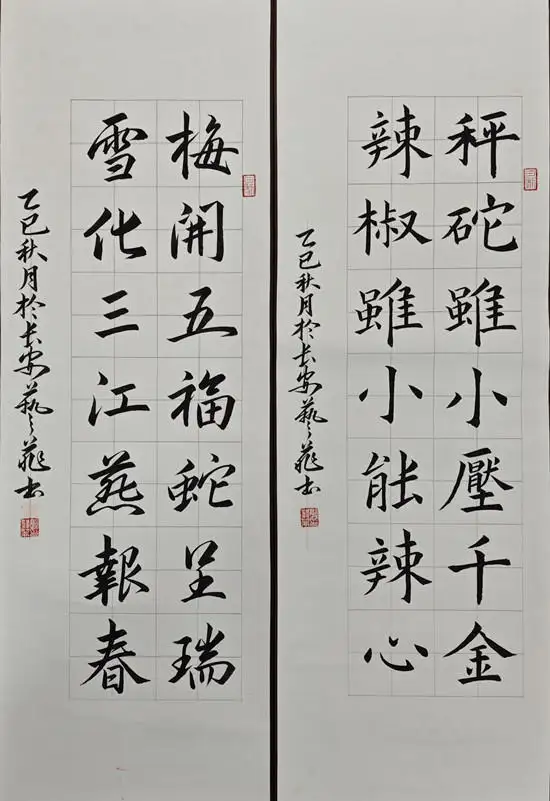 秤砣雖小壓千金
辣椒雖小能辣心
乙巳秋月於长安藝书
梅開五福蛇呈瑞
雪化三江燕報春
乙巳秋月於长安藝书